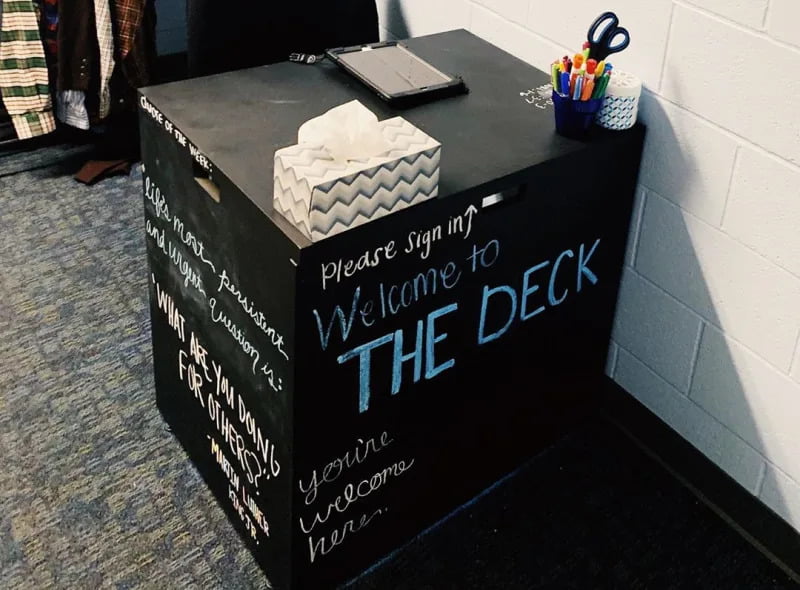 QUOTE OF THE WEEK:
"life's most persistent
and urgent question is:
"WHAT ARE YOU DOING
FOR OTHERS?"
-MARTIN LUTHER
KING JR.
Please sign in↑
Welcome to
THE DECK
you're
welcome
here..